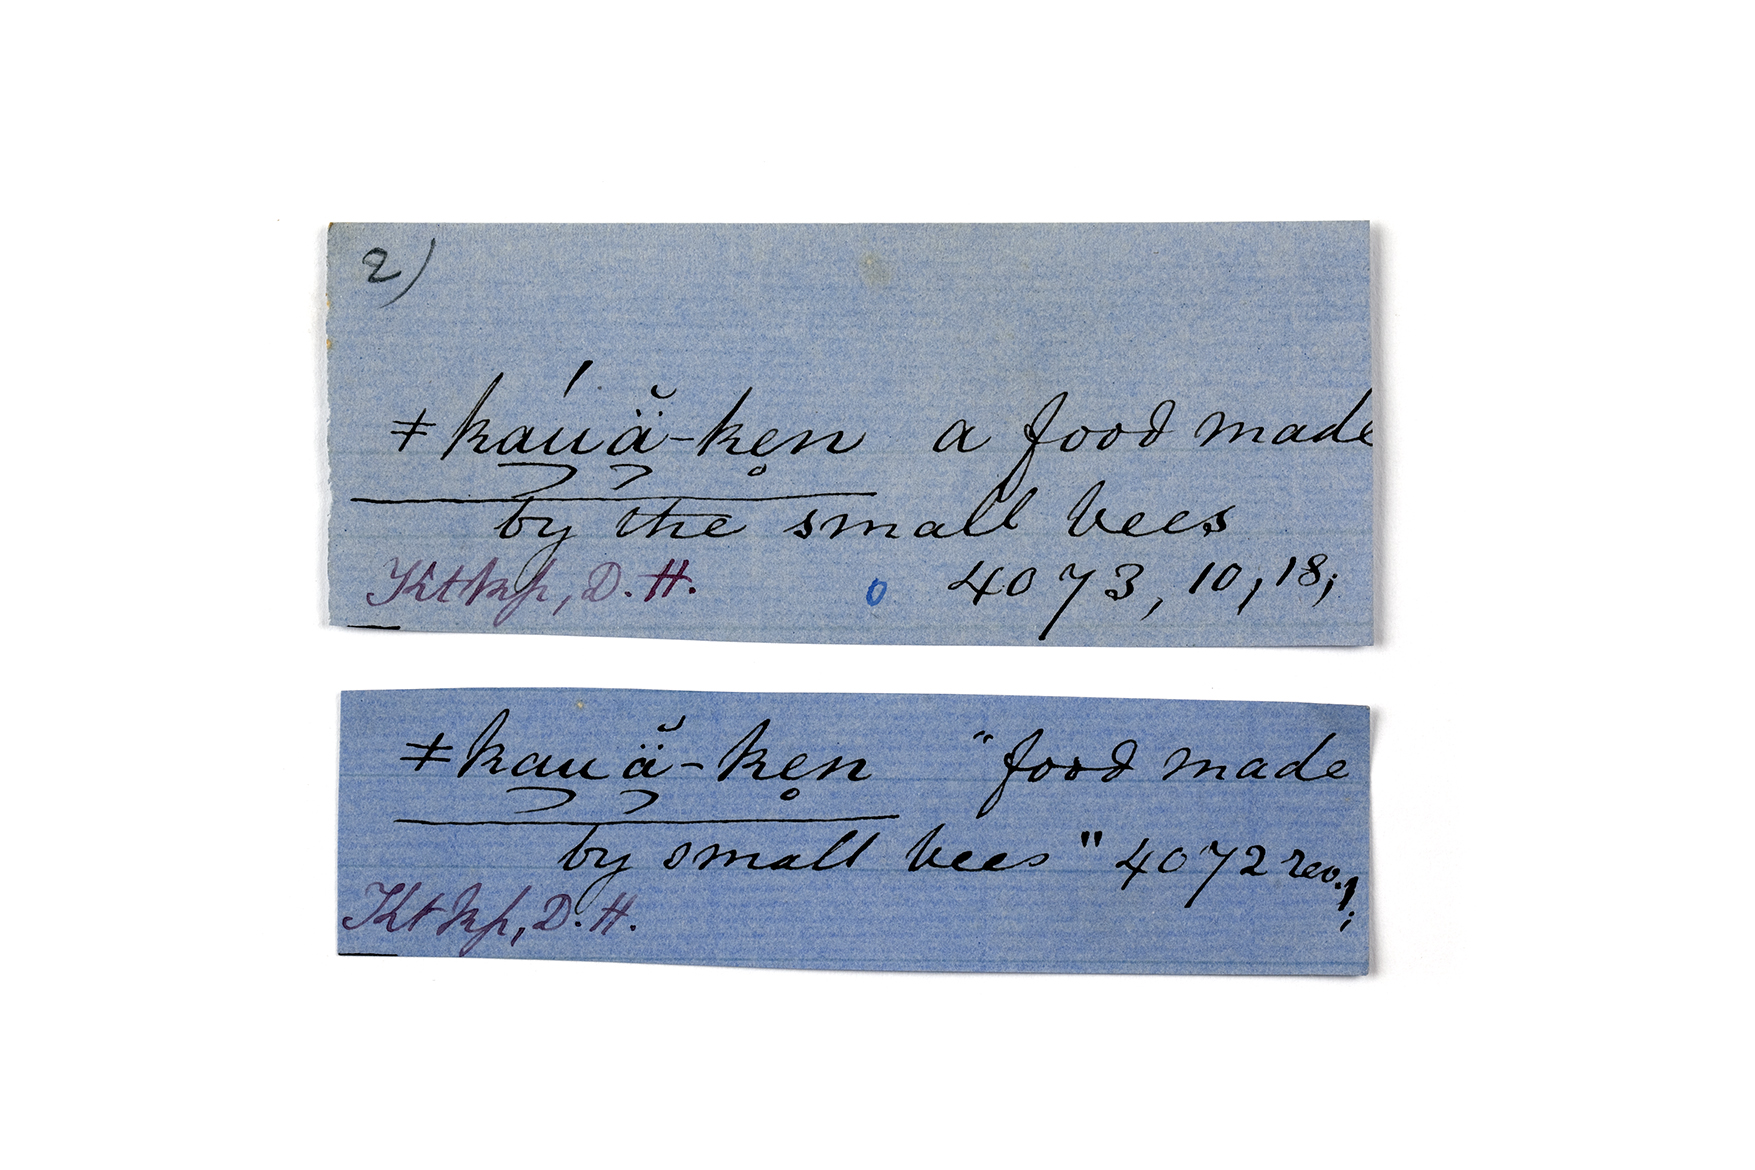 2)
ǂkaúä̆-ke̥n a food made
by the small bees
Ktkp, D. H. 0 4073, 10, 18;
ǂkauä̆-ke̥n "food made
by small bees" 4072 rev. 1;
Ktkp, D. H.